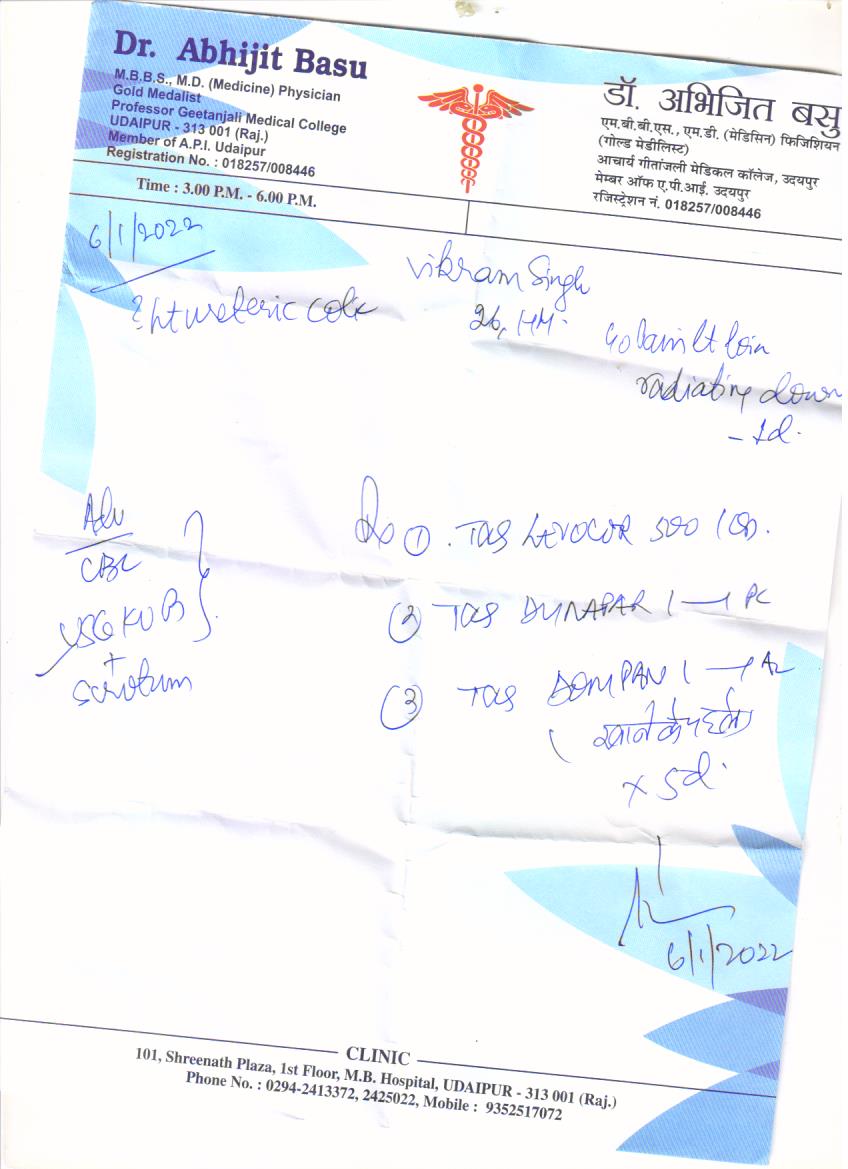 Dr. Abhijit Basu
M.B.B.S., M.D. (Medicine) Physician
Gold Medalist
Professor Geetanjali Medical College
UDAIPUR - 313 001 (Raj.)
Member of A.P.I. Udaipur
Registration No. : 018257/008446
Time : 3.00 P.M. - 6.00 P.M.
डॉ. अभिजित बसु
एम.बी.बी.एस., एम.डी. (मेडिसिन) फिजिशियन
(गोल्ड मेडीलिस्ट)
आचार्य गीतांजली मेडिकल कॉलेज, उदयपुर
मेम्बर ऑफ ए.पी.आई. उदयपुर
रजिस्ट्रेशन नं. 018257/008446
6/1/2022
Vikram Singh
26, HM.
? Lt ureteric colic
c/o pain Lt loin
radiating down
- 1d.
Adv
CBC
USG KUB
+
scrotum
Rx
① . TAB 500 1 OD.
② TAB DUNAPAR 1 — PC
③ TAB DOMPAN 1 — AC
( खाने के पहले
x 5d.
6/1/2022
CLINIC
101, Shreenath Plaza, 1st Floor, M.B. Hospital, UDAIPUR - 313 001 (Raj.)
Phone No. : 0294-2413372, 2425022, Mobile : 9352517072